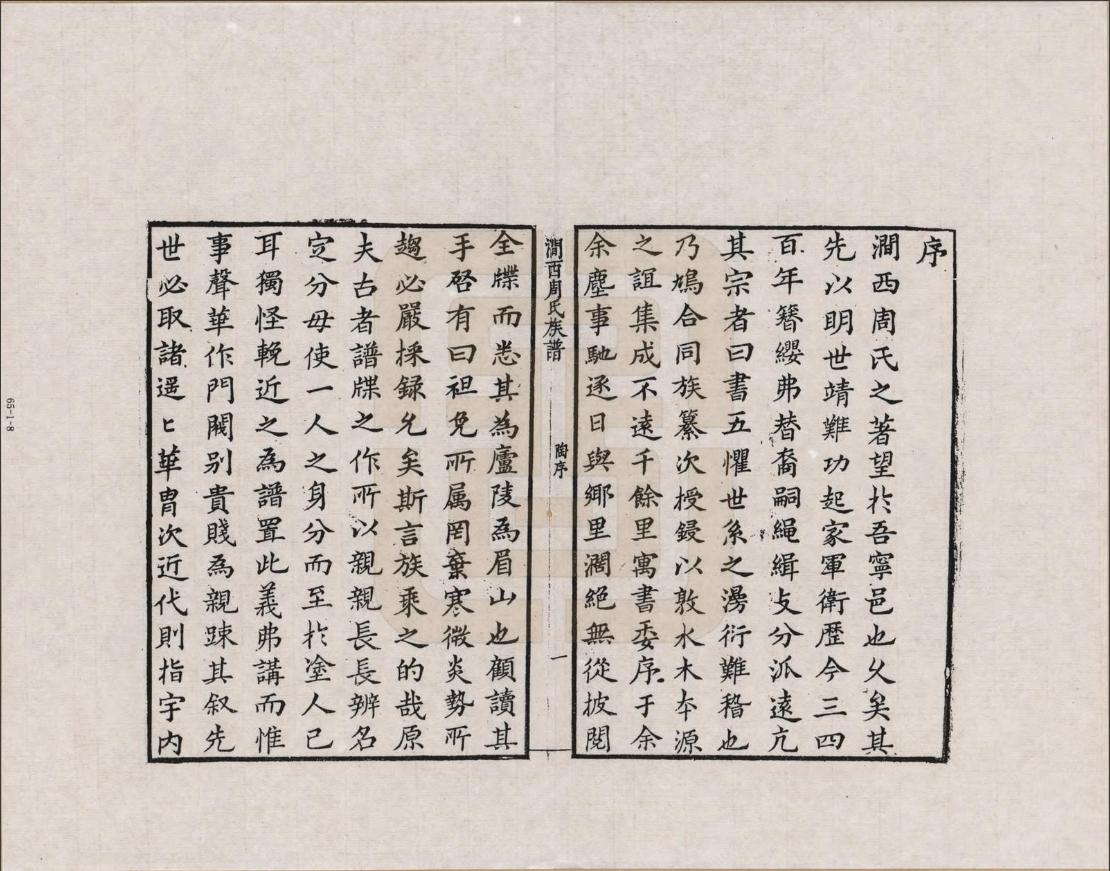 序
澗西周氏之著望於吾寧邑也久矣其
先以明世靖難功起家軍衛歷今三四
百年簪纓弗替裔嗣繩緝攴分派遠亢
其宗者曰書五懼世系之漫衍難稽也
乃鳩合同族纂次授鋟以敦水木本源
之誼集成不遠千餘里寓書委序于余
余塵事馳逐日與鄉里濶絕無從披閱
澗西周氏族譜
陶序
一
全牒而悉其為廬陵為眉山也顧讀其
手啓有曰袒免所属罔棄寒微炎勢所
趨必嚴採録允矣斯言族乘之的哉原
夫古者譜牒之作所以親親長長辨名
定分毋使一人之身分而至於塗人已
耳獨怪輓近之為譜置此義弗講而惟
事聲華作門閥别貴賤為親踈其叙先
世必取諸遥匕華胄次近代則指宇内
65-1-8